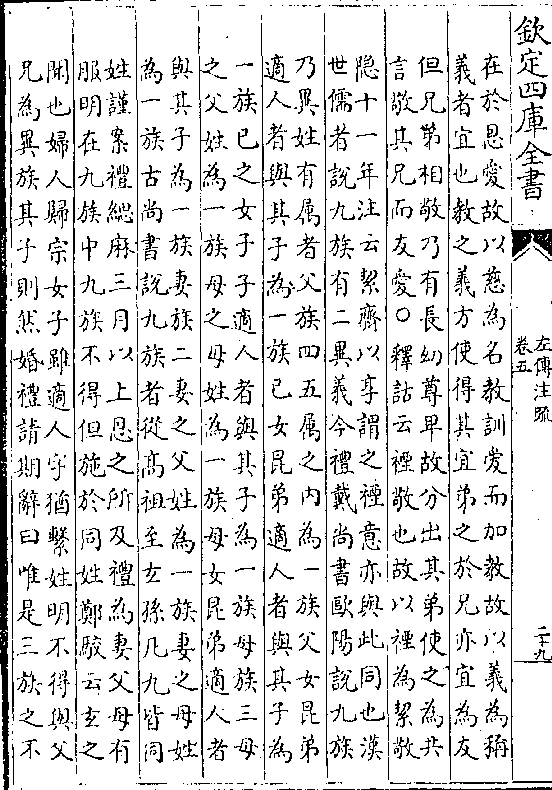 欽定四庫全書
左傳注疏
卷五
二十九
在於恩愛故以慈為名教訓愛而加教故以義為稱
義者宜也教之義方使得其宜弟之於兄亦宜為友
但兄弟相敬乃有長幼尊卑故分出其弟使之為共
言敬其兄而友愛○釋詁云禋敬也故以禋為絜敬
隐十一年注云絜齊以享謂之禋意亦與此同也漢
世儒者說九族有二異義今禮戴尚書歐陽說九族
乃異姓有属者父族四五属之内為一族父女昆弟
適人者與其子為一族己女昆弟適人者與其子為
一族己之女子子適人者與其子為一族母族三母
之父姓為一族母之母姓為一族母女昆弟適人者
與其子為一族妻族二妻之父姓為一族妻之母姓
為一族古尚書說九族者從髙祖至玄孫凡九皆同
姓謹案禮緦麻三月以上恩之所及禮為妻父母有
服明在九族中九族不得但施於同姓鄭駁云玄之
聞也婦人歸宗女子雖適人字猶繫姓明不得與父
兄為異族其子則然婚禮請期辭曰唯是三族之不